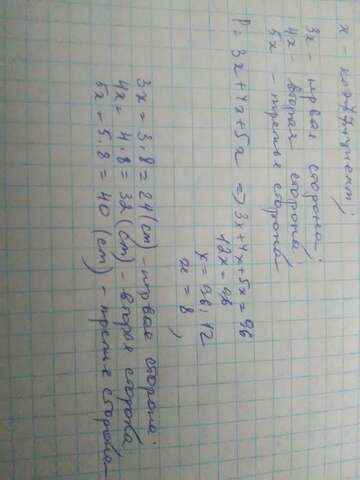 x - коэффициент,
3x - первая сторона,
4x - вторая сторона,
5x - третья сторона.
P = 3x + 4x + 5x => 3x + 4x + 5x = 96
12x = 96
x = 96 : 12
x = 8,
3x = 3 . 8 = 24 (cm) - первая сторона,
4x = 4 . 8 = 32 (cm) - вторая сторона,
5x = 5 . 8 = 40 (cm) - третья сторона